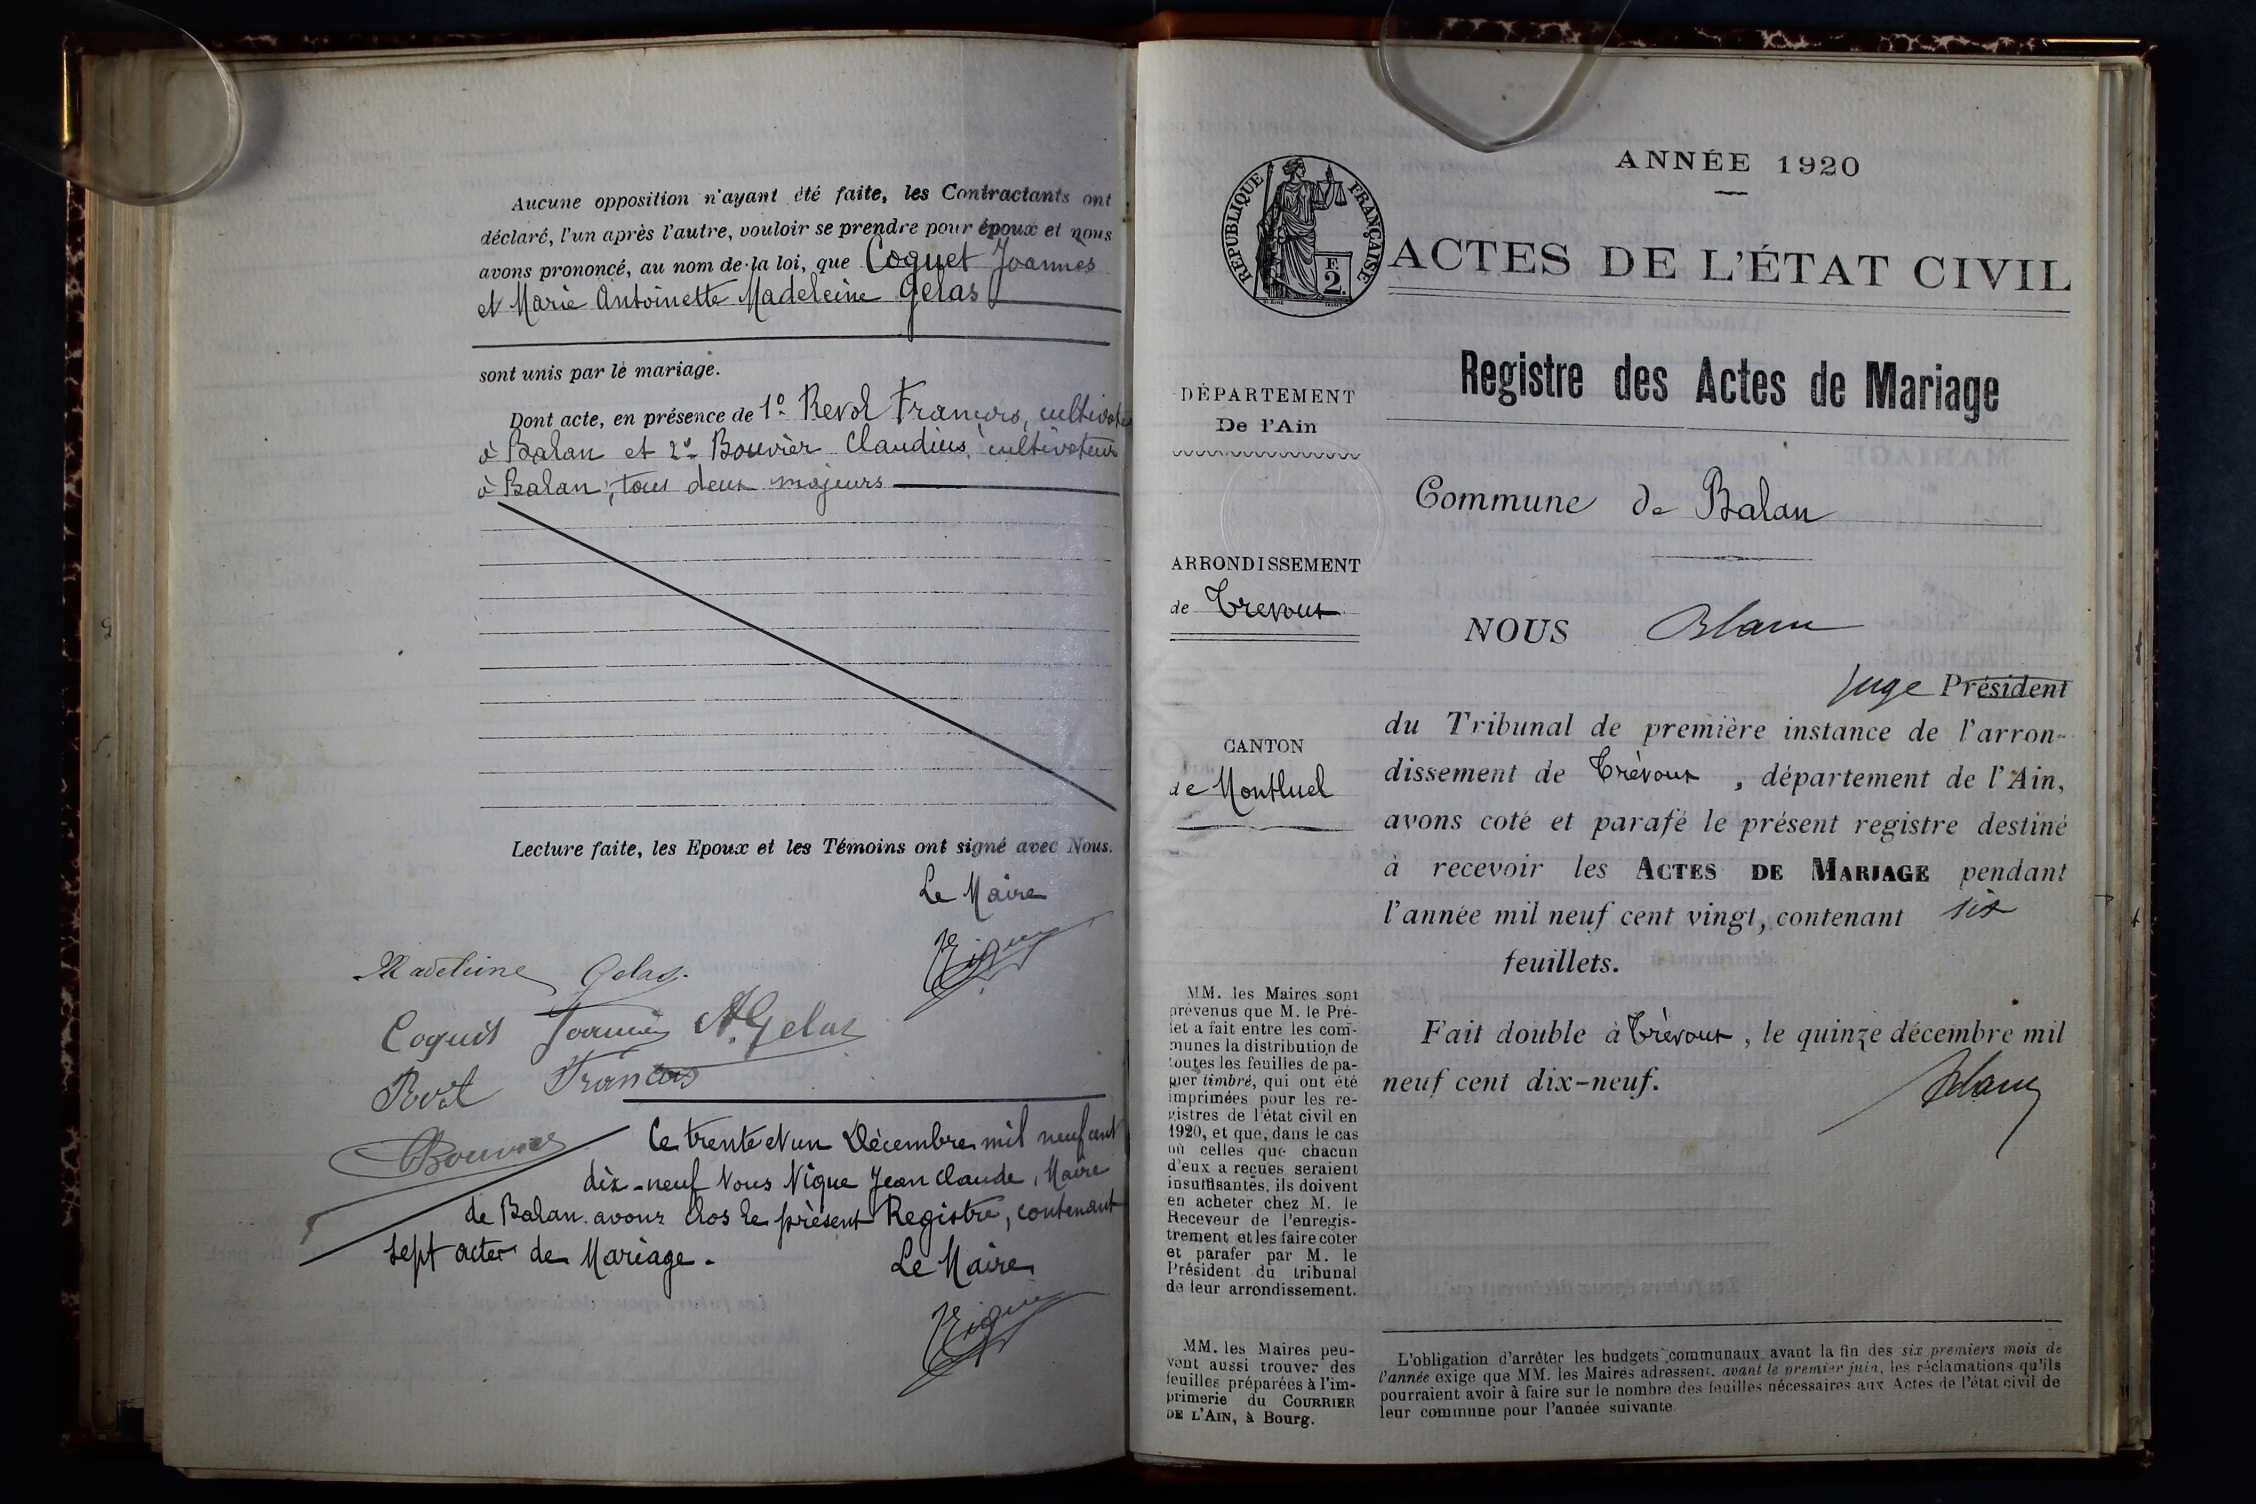 Aucune opposition n'ayant été faite, les Contractants ont
déclaré, l'un après l'autre, vouloir se prendre pour époux et nous
avons prononcé, au nom de la loi, que Coquet Joannes
et Marie Antoinette Madeleine Gelas
sont unis par le mariage.
Dont acte, en présence de 1º Revol François, cultivateur
à Balan et 2º Bouvier Claudius, cultivateur
à Balan, tous deux majeurs
Lecture faite, les Epoux et les Témoins ont signé avec Nous.
Le Maire
Nique
Madeleine Gelas.
Coquet Joannès A. Gelas
Revol François
Bouvier
Ce trente et un Décembre mil neuf cent
dix-neuf Nous Nique Jean Claude, Maire
de Balan avons clos le présent Registre, contenant
sept actes de Mariage.
Le Maire
Nique
ANNÉE 1920
RÉPUBLIQUE FRANÇAISE
F.
2.
ACTES DE L'ÉTAT CIVIL
Registre des Actes de Mariage
DÉPARTEMENT
De l'Ain
Commune de Balan
ARRONDISSEMENT
de Trévoux
NOUS
Juge Président
du Tribunal de première instance de l'arron-
dissement de Trévoux, département de l'Ain,
avons coté et parafé le présent registre destiné
à recevoir les ACTES DE MARIAGE pendant
l'année mil neuf cent vingt, contenant six
feuillets.
Fait double à Trévoux, le quinze décembre mil
neuf cent dix-neuf.
CANTON
de Montluel
MM. les Maires sont
prévenus que M. le Pré-
fet a fait entre les com-
munes la distribution de
toutes les feuilles de pa-
pier timbré, qui ont été
imprimées pour les re-
gistres de l'état civil en
1920, et que, dans le cas
où celles que chacun
d'eux a reçues seraient
insuffisantes, ils doivent
en acheter chez M. le
Receveur de l'enregis-
trement et les faire coter
et parafer par M. le
Président du tribunal
de leur arrondissement.
MM. les Maires peu-
vent aussi trouver des
feuilles préparées à l'im-
primerie du COURRIER
DE L'AIN, à Bourg.
L'obligation d'arrêter les budgets communaux avant la fin des six premiers mois de
l'année exige que MM. les Maires adressent, avant le premier juin, les réclamations qu'ils
pourraient avoir à faire sur le nombre des feuilles nécessaires aux Actes de l'état civil de
leur commune pour l'année suivante.